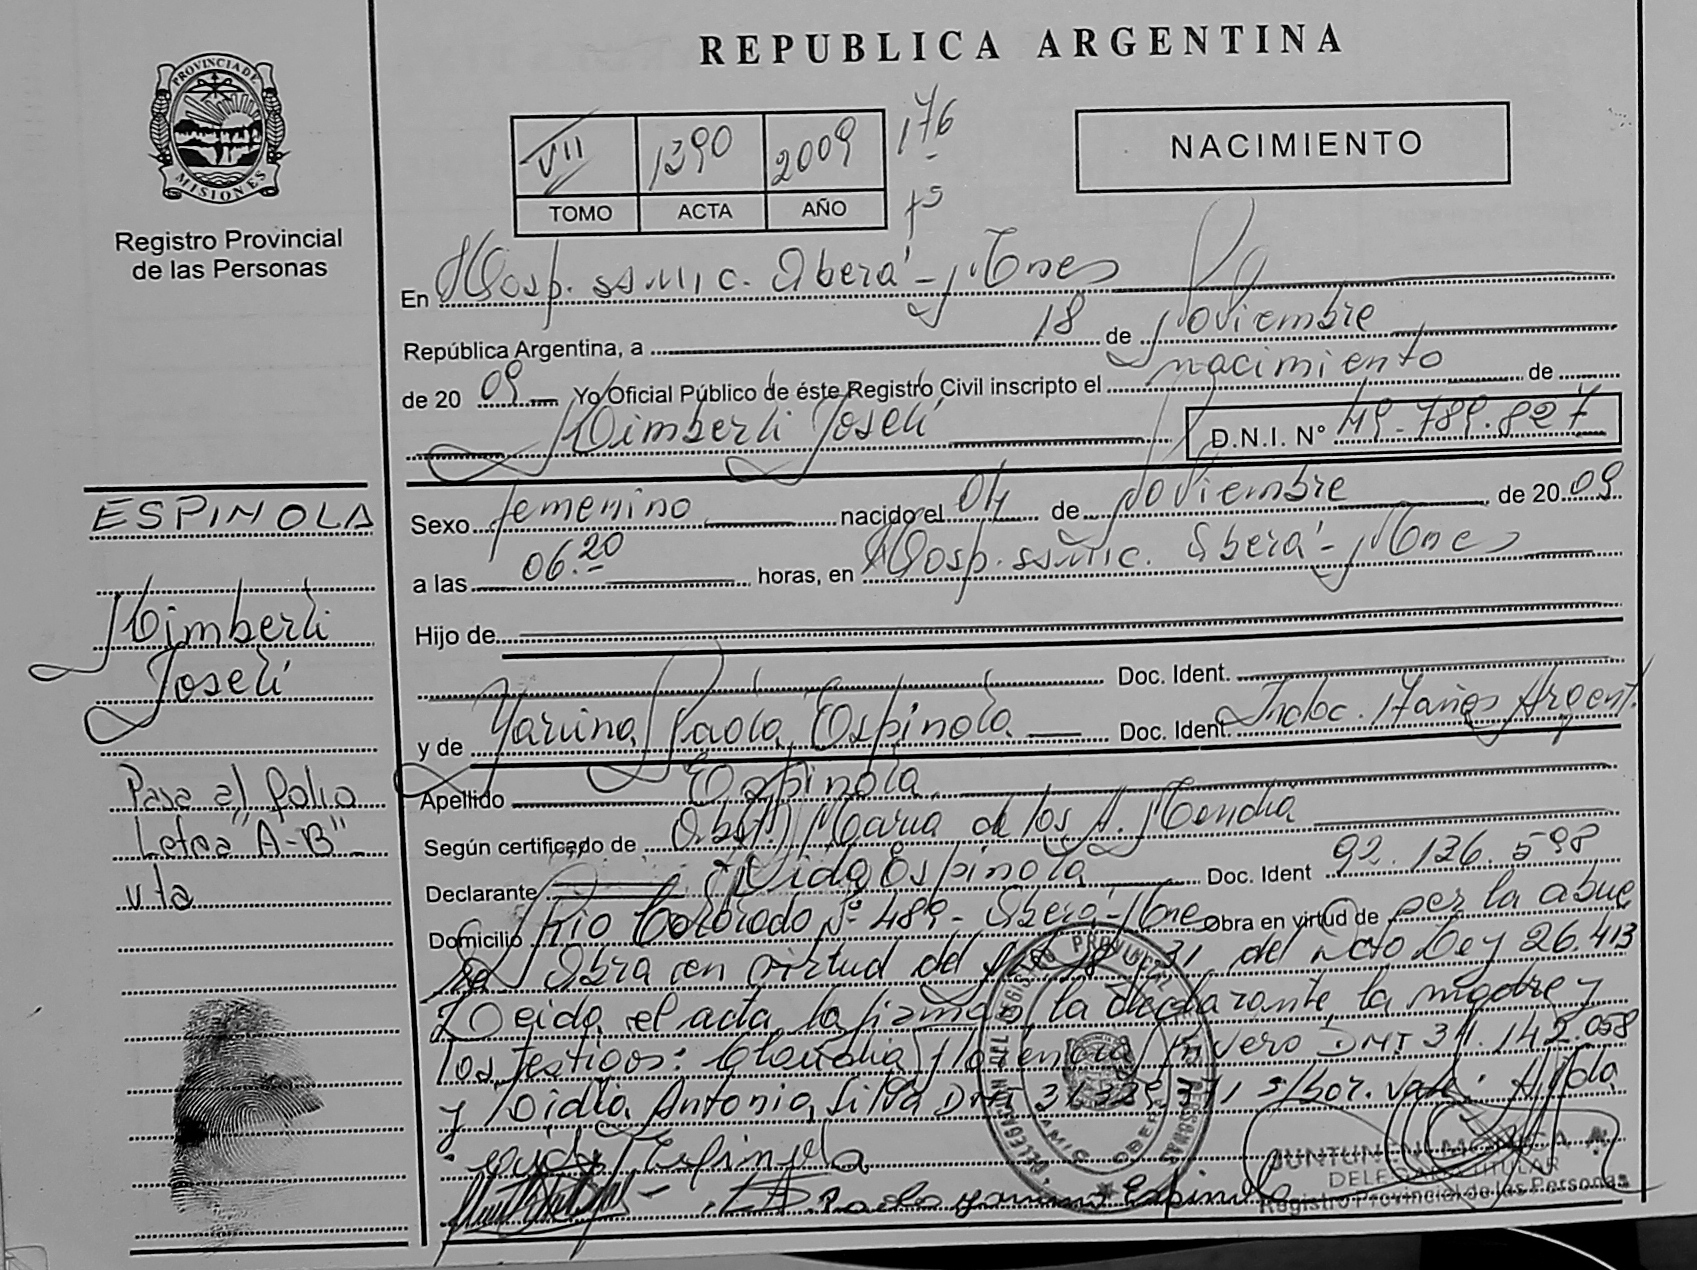 REPUBLICA ARGENTINA
PROVINCIA DE
MISIONES
Registro Provincial
de las Personas
VII 1390 2009 176
TOMO ACTA AÑO
NACIMIENTO
En Hosp. SSMIC. Oberá - Mnes
República Argentina, a 18 de Noviembre
de 20 09 Yo Oficial Público de éste Registro Civil inscripto el nacimiento de
Kimberli Joseli D.N.I. Nº 49.789.827
ESPINOLA
Kimberli
Joseli
Pasa al folio
Letra "A-B"
vta
Sexo femenino nacido el 04 de Noviembre de 20 09
a las 06.20 horas, en Hosp. SSMIC. Oberá - Mnes
Hijo de
Doc. Ident.
y de Yanina Paola Espinola Doc. Ident. Indoc. 17 años Argent.
Apellido Espinola
Según certificado de Obst. Maria de los A.
Declarante Espinola Doc. Ident 92.136.598
Domicilio Rio Colorado Nº 489 - Oberá - Mnes Obra en virtud de por la abue
la Obra en virtud del 31 del Ley 26.413
Leida el acta, la firman la declarante, la madre y
los testigos: Claudia DNI 31.142.058
y Antonia Silva DNI s/bor. vale:
Espinola
Paola Yanina Espinola
DELEGADA TITULAR
Registro Provincial de las Personas